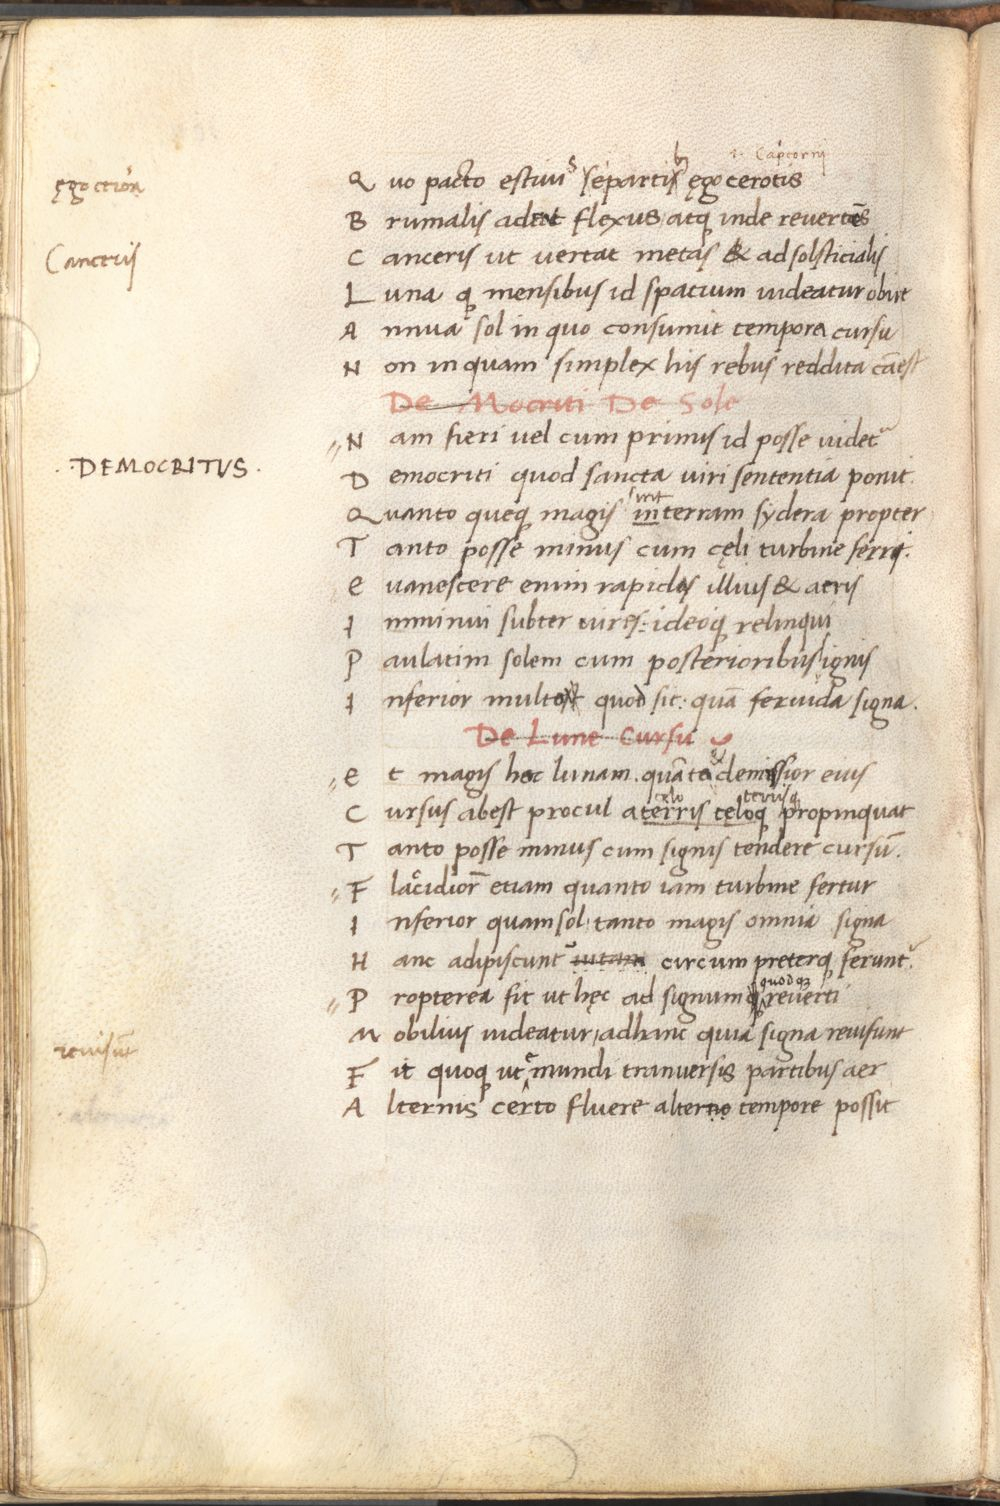 .i. Capcorni
ęgoceron
Q uo pacto estiuis separtibus ęgocerotis
B rumalis adeat flexus atq inde reuertēs
Canceris
C anceris ut uertat metas & ad solsticialis
L una q mensibus id spatium uideatur obire
A nnua sol in quo consumit tempora cursu
N on inquam simplex his rebus reddita cāest
De Mocriti De Sole
N am fieri uel cum primis id posse uidet
.DEMOCRITUS.
D emocriti quod sancta uiri sententia ponit.
sint
Q uanto queq magis interram sydera propter
T anto posse minus cum cęli turbine ferri.
E uanescere enim rapidas illius & acris
I mminui subter uires: ideoq relinqui
P aulatim solem cum posterioribus signis
I nferior multo quod sit: quā feruida signa.
De Lune Cursu
E t magis hoc lunam. quāto demissior eius
celo terrisq
C ursus abest procul a terris celoq propinquat
T anto posse minus cum signis tendere cursū.
F laccidiorē etiam quanto iam turbine fertur
I nferior quam sol: tanto magis omnia signa
H anc adipiscunt circum preterq ferunt.
quodq;
P ropterea fit ut hęc ad signum q reuerti
M obilius uideatur, adhanc quia signa reuisunt
reuisūt
F it quoq ut e mundi tranuersis partibus aer
A lternis certo fluere alterno tempore possit